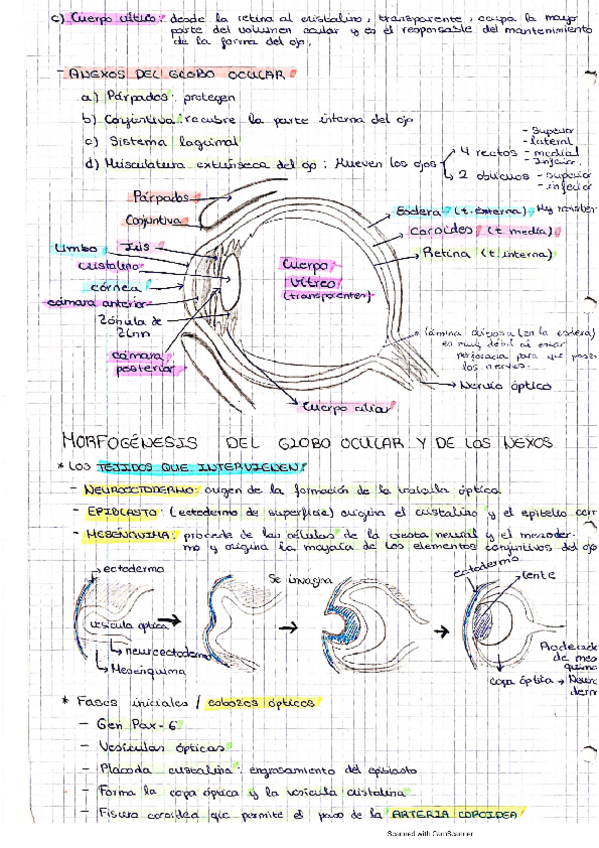 c) Cuerpo vítreo: desde la retina al cristalino, transparente, ocupa la mayor
parte del volumen ocular y es el responsable del mantenimiento
de la forma del ojo.
- ANEXOS DEL GLOBO OCULAR.
a) Párpados: protegen
b) Conjuntiva: recubre la parte interna del ojo
c) Sistema lagrimal
d) Musculatura extrínseca del ojo: Mueven los ojos
4 rectos
- Superior
- lateral
- medial
- Inferior.
2 oblicuos
- superior
- inferior
Párpados
Conjuntiva
Limbo
Iris
cristalino
córnea
cámara anterior
Zónula de
Zinn
cámara
posterior
Cuerpo
Vítreo
(transparente)
Esclera (t. externa) Muy
Coroides (t media)
Retina (t interna)
lámina cribosa (en la esclera)
es muy débil al estar
perforada para que
los nervios.
Nervio óptico
Cuerpo ciliar
MORFOGÉNESIS DEL GLOBO OCULAR Y DE LOS NEXOS
* LOS TEJIDOS QUE INTERVIENEN:
- NEUROECTODERMO: origen de la formación de la vesícula óptica
- EPIBLASTO: (ectodermo de superficie) origina el cristalino y el epitelio
- MESÉNQUIMA: procede de las células de la cresta neural y el mesoder-
mo y origina la mayoría de los elementos conjuntivos del ojo
ectodermo
vesícula óptica
neuroectodermo
Mesénquima
Se invagina
ectodermo
lente
de
copa óptica
* Fases iniciales / esbozos ópticos
- Gen Pax-6
- Vesículas ópticas
- Placoda cristalina: engrosamiento del epiblasto
- Forma la copa óptica y la vesícula cristalina
- Fisura coroidea que permite el paso de la ARTERIA COROIDEA
Scanned with CamScanner